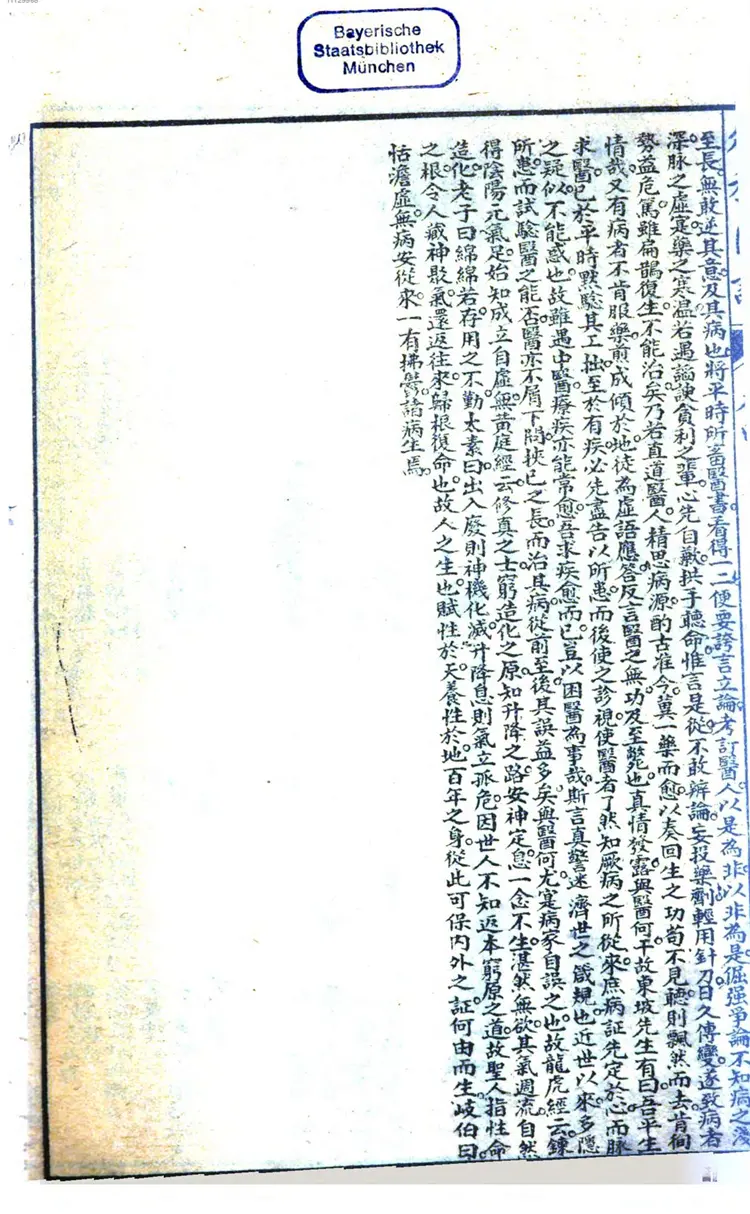 Bayerische
Staatsbibliothek
München
至長無敢逆其意及其病也將平時所畜醫書看得一二便要誇言立論考訂醫人以是為非以非為是倔强爭論不知病之淺
深脉之虛寔藥之寒溫若遇諂諛貪利之輩心先自歉拱手聽命惟言是從不敢辨論妄投藥劑輕用針刀日久傳變遂致病者
勢益危篤雖扁鵲復生不能治矣乃若直道醫人精思病源酌古准今冀一藥而愈以奏回生之功苟不見聽則飄然而去肯徇
情哉又有病者不肯服藥煎成傾於地徒為虛語應答反言醫之無功及至斃也真情發露與醫何干故東坡先生有曰吾平生
求醫已於平時默驗其工拙至於有疾必先盡告以所患而後使之診視使醫者了然知厥病之所從來庶病証先定於心而脉
之疑似不能惑也故雖遇中醫療疾亦能常愈吾求疾愈而已豈以困醫為事哉斯言真警迷濟世之箴規也近世以來多隱
所患而試驗醫之能否醫亦不屑下問挾己之長而治其病從前至後其誤益多矣與醫何尤寔病家自誤之也故龍虎經云鍊
得陰陽元氣足始知成立自虛無黃庭經云修真之士窮造化之原知升降之路安神定息一念不生湛然無欲其氣週流自然
造化老子曰綿綿若存用之不勤太素曰出入廢則神機化滅升降息則氣立孤危因世人不知返本窮原之道故聖人指性命
之根令人藏神聚氣還返往來歸根復命也故人之生也賦性於天養性於地百年之身從此可保內外之証何由而生岐伯曰
恬澹虛無病安從來一有拂鬱諸病生焉